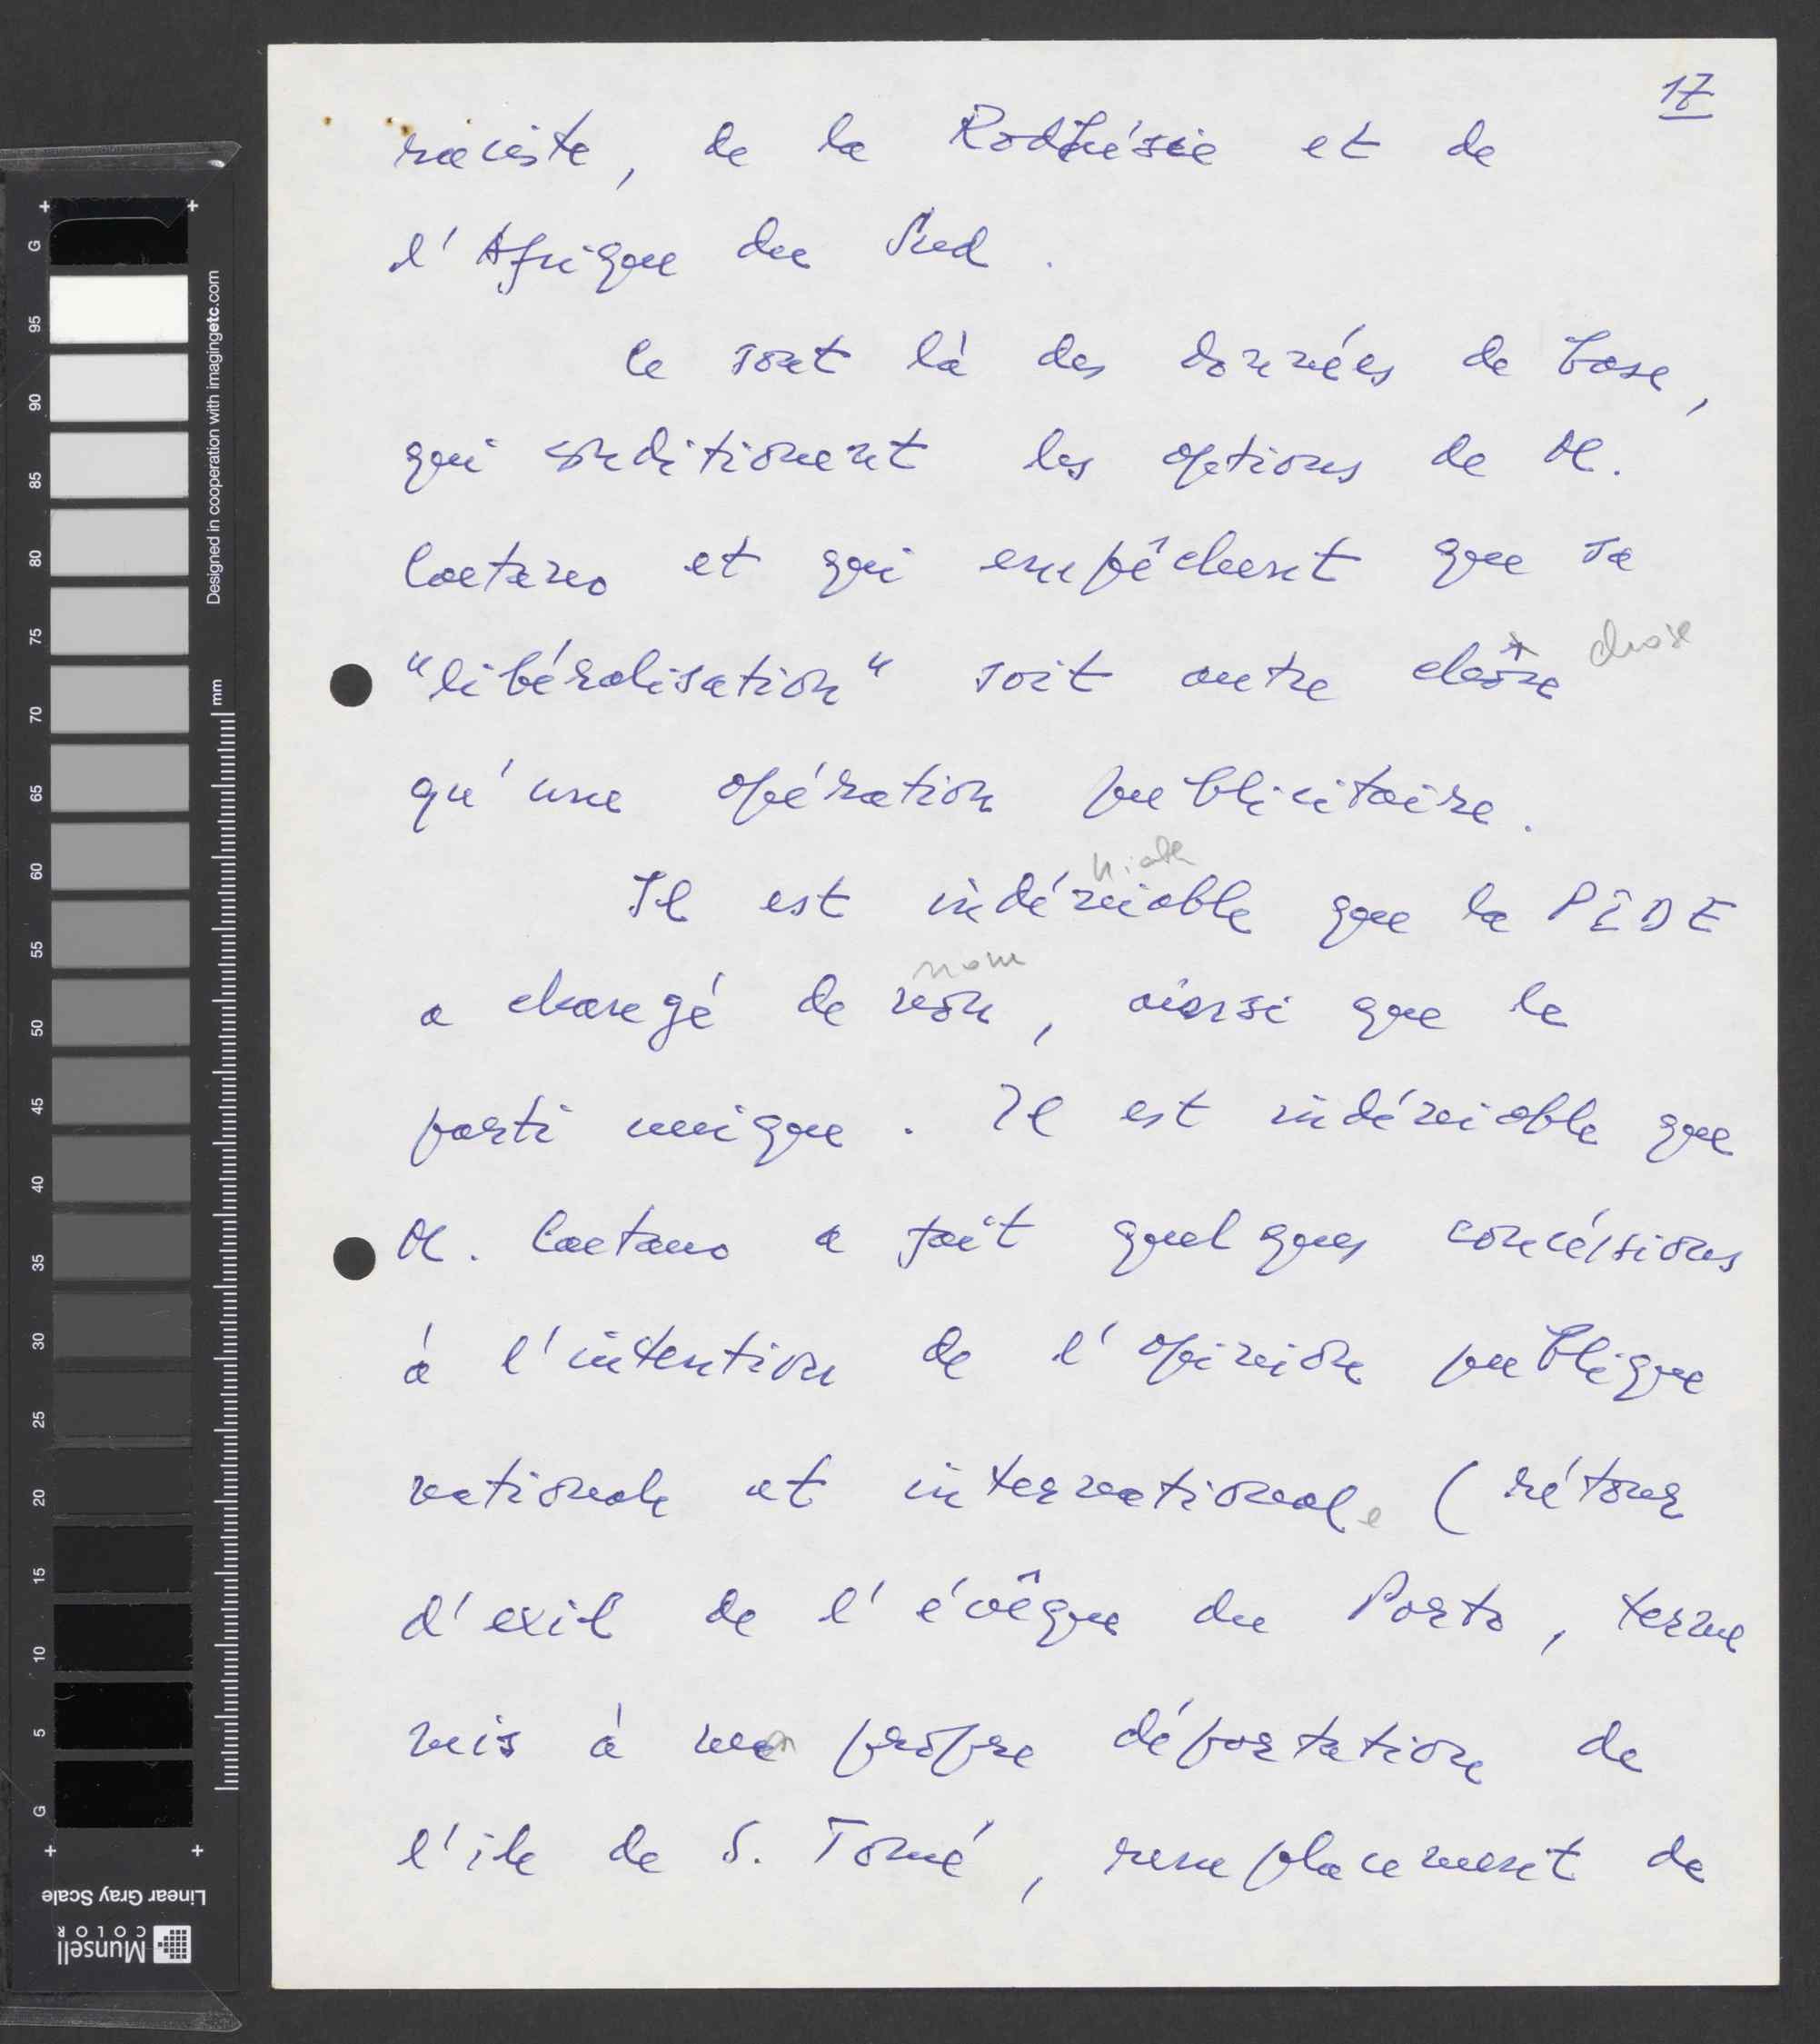 17
raciste, de la Rodhésie et de
l'Afrique du Sud.
Ce sont là des données de base,
qui conditionent les options de M.
Caetano et qui empêchent que sa
"libéralisation" soit autre chose chose
qu'une opération publicitaire.
Il est indéniable que la PIDE
nom
a changé de non, ainsi que le
parti unique. Il est indéniable que
M. Caetano a fait quelques concéssions
à l'intention de l'opinion publique
nationale et internationale (rétour
d'exil de l'évêque du Porto, terme
mis à ma propre déportation de
l'ile de S. Tomé, remplacement de
G 95 90 85 80 75 70 65 60 55 50 45 40 35 30 25 20 15 10 5 G
Designed in cooperation with imagingetc.com
mm
Linear Gray Scale
Munsell
COLOR